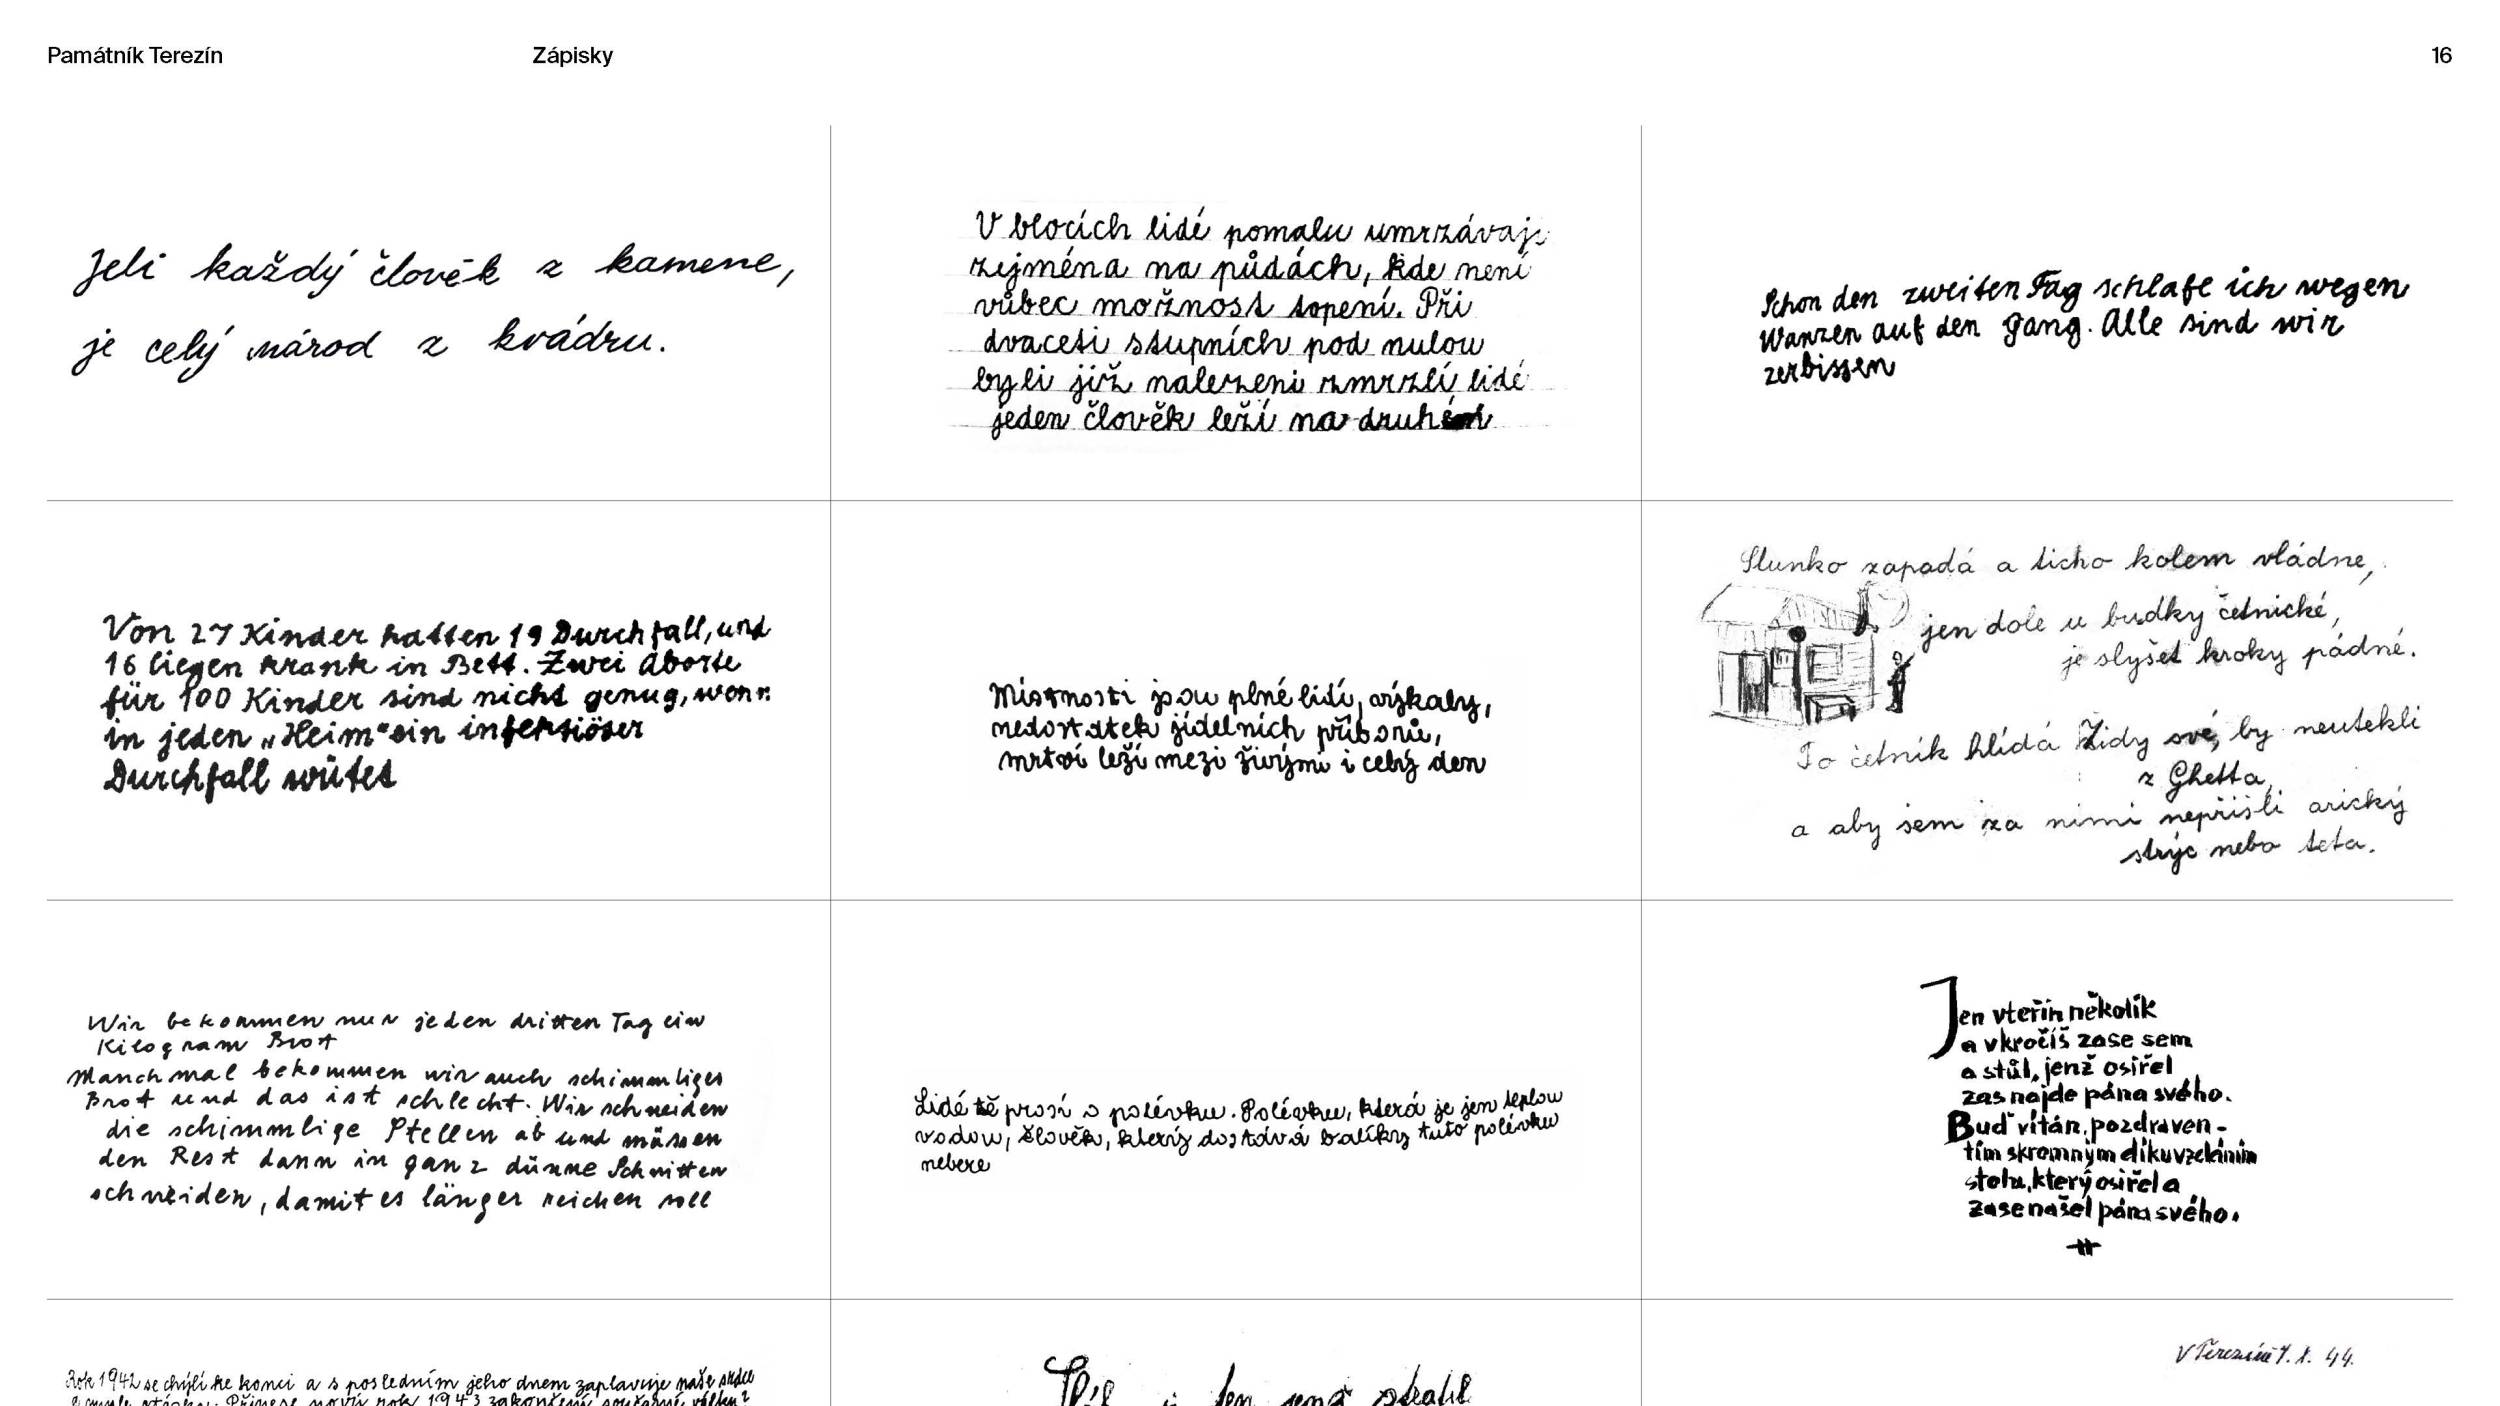 Památník Terezín
Zápisky
16
Jeli každý člověk z kamene,
je celý národ z kvádru.
V blocích lidé pomalu umrzávají
zejména na půdách, kde není
vůbec možnost topení. Při
dvaceti stupních pod nulou
byli již nalezeni zmrzlí lidé
jeden člověk leží na druhém
Schon den zweiten Tag schlafe ich wegen
Wanzen auf den Gang. Alle sind wir
zerbissen
Von 27 Kinder hatten 19 Durchfall, und
16 liegen krank in Bett. Zwei Aborte
für 100 Kinder sind nicht genug, wenn
in jeden „Heim“ ein infektiöser
Durchfall wütet
Místnosti jsou plné lidí, výskaly,
nedostatek jídelních příborů,
mrtví leží mezi živými i celý den
Slunko zapadá a ticho kolem vládne,
jen dole u budky četnické,
je slyšet kroky pádné.
To četník hlídá Židy své, by neutekli
z Ghetta,
a aby sem za nimi nepřišli arický
strýc nebo teta.
Wir bekommen nur jeden dritten Tag ein
Kilogram Brot
Manchmal bekommen wir auch schimmliges
Brot und das ist schlecht. Wir schneiden
die schimmlige Stellen ab und müssen
den Rest dann in ganz dünne Schnitten
schneiden, damit es länger reichen soll
Lidé tě prosí o polévku. Polévku, která je jen teplou
vodou, člověk, který dostává balíky tuto polévku
nebere
Jen vteřin několik
a vkročíš zase sem
a stůl, jenž osiřel
zas najde pána svého.
Buď vítán, pozdraven -
tím skromným díkuvzdáním
stolu, který osiřel a
zase našel pána svého.
Rok 1942 se chýlí ke konci a s posledním jeho dnem zaplavuje naše srdce
Přinese nový rok 1943 zakončení současné války?
V Terezíně 7. X. 44.